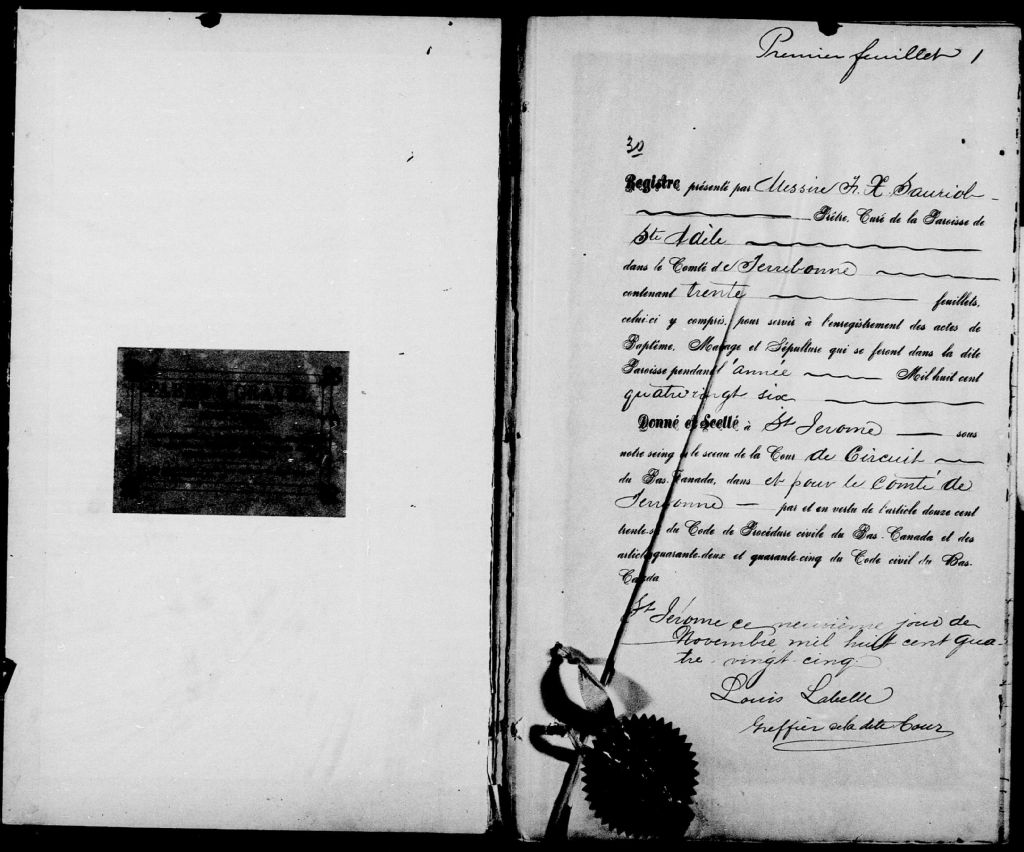 Premier feuillet 1
30
Registre présenté par Messire F. X. Sauriol
Prêtre, Curé de la Paroisse de
Ste Adèle
dans le Comté de Terrebonne
contenant trente feuillets,
celui-ci y compris, pour servir à l'enregistrement des actes de
Baptême, Mariage et Sépulture qui se feront dans la dite
Paroisse pendant l'année Mil huit cent
quatre vingt six
Donné et Scellé à St Jerome sous
notre seing et le sceau de la Cour de Circuit
du Bas-Canada, dans et pour le Comté de
Terrebonne par et en vertu de l'article douze cent
trente-six du Code de Procédure civile du Bas-Canada et des
articles quarante-deux et quarante-cinq du Code civil du Bas-
Canada
St Jérome ce neuvième jour de
Novembre mil huit cent qua-
tre-vingt cinq
Louis Labelle
Greffier de la dite Cour